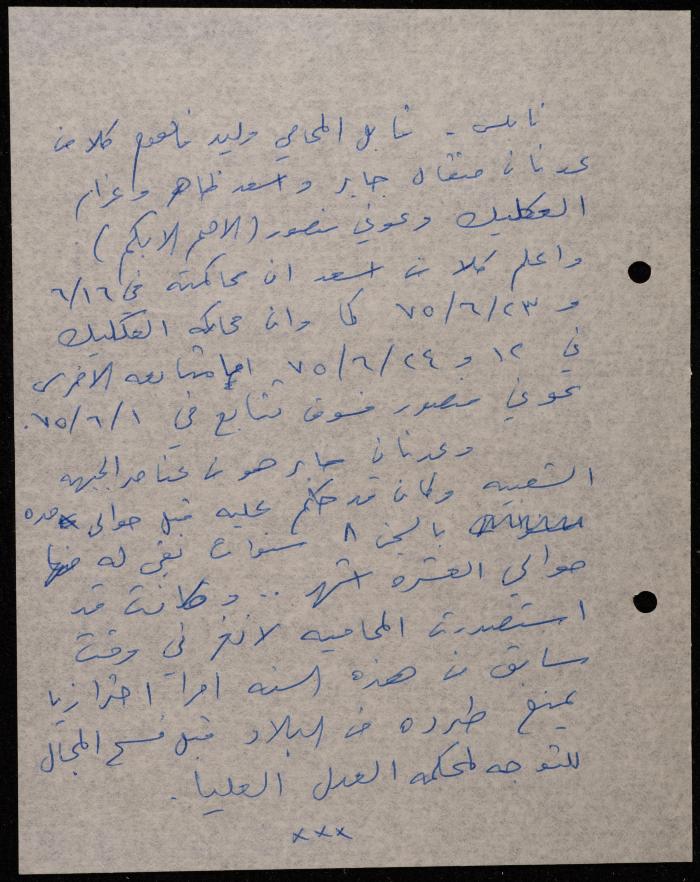 نابلس - قابل المحامي وليد فاهوم كلا من
عدنان منقال جابر واسعد ظاهر وعزام
العكليك وعوني منصور (الاصم الابكم).
واعلم كلا من اسعد ان محاكمته في ٦/١٦
و ٧٥/٦/٢٣ كما وان محاكمه العكليك
في ١٢ و ٧٥/٦/٢٤ اما متابعه الاخرى
عوني منصور فسوف تتابع في ٧٥/٦/١.
وعدنان جابر هو من عناصر الجبهه
الشعبيه وكان قد حكم عليه قبل حوالي مده
بالسجن ٨ سنوات بقي له منها
حوالي العشره اشهر .. وكانت قد
استصدرت المحاميه لانغر في وقت
سابق من هذه السنه امرا احترازيا
يمنع طرده من البلاد قبل فسح المجال
للتوجه لمحكمه العدل العليا.
×××